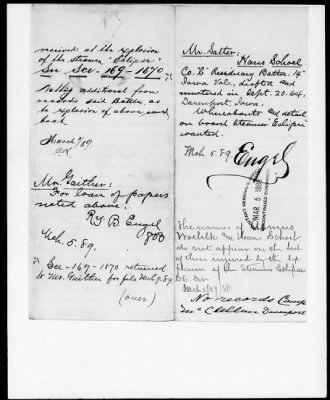 received at the explosion
of the Steamer "Eclipse"
See Sev-169-1870
Nothing additional from
records said Battery as
to explosion of above named
boat
March 9/89
Mr. Gaither:
For loan of papers
noted above.
R. B. Engel
Mch. 5. 89.
Sev-169-1870 returned
to Mr. Gaither for file Mch. 9. 89
(over)
Mr. Salter:
Hans Schoel
Co. "C" Reardinary Batter. 14"
Iowa Vols., drafted and
mustered in Sept. 20. 64.
Davenport, Iowa.
Whereabouts and detail
on board steamer "Eclipse"
wanted.
Mch. 5. 89 Engel
MAR 5 188
The names of
and Hans Schoel
do not appear on the list
of those injured by the ex
plosion of the Steamer Eclipse
Mch 5/89
No records Camp
McClellan Davenport